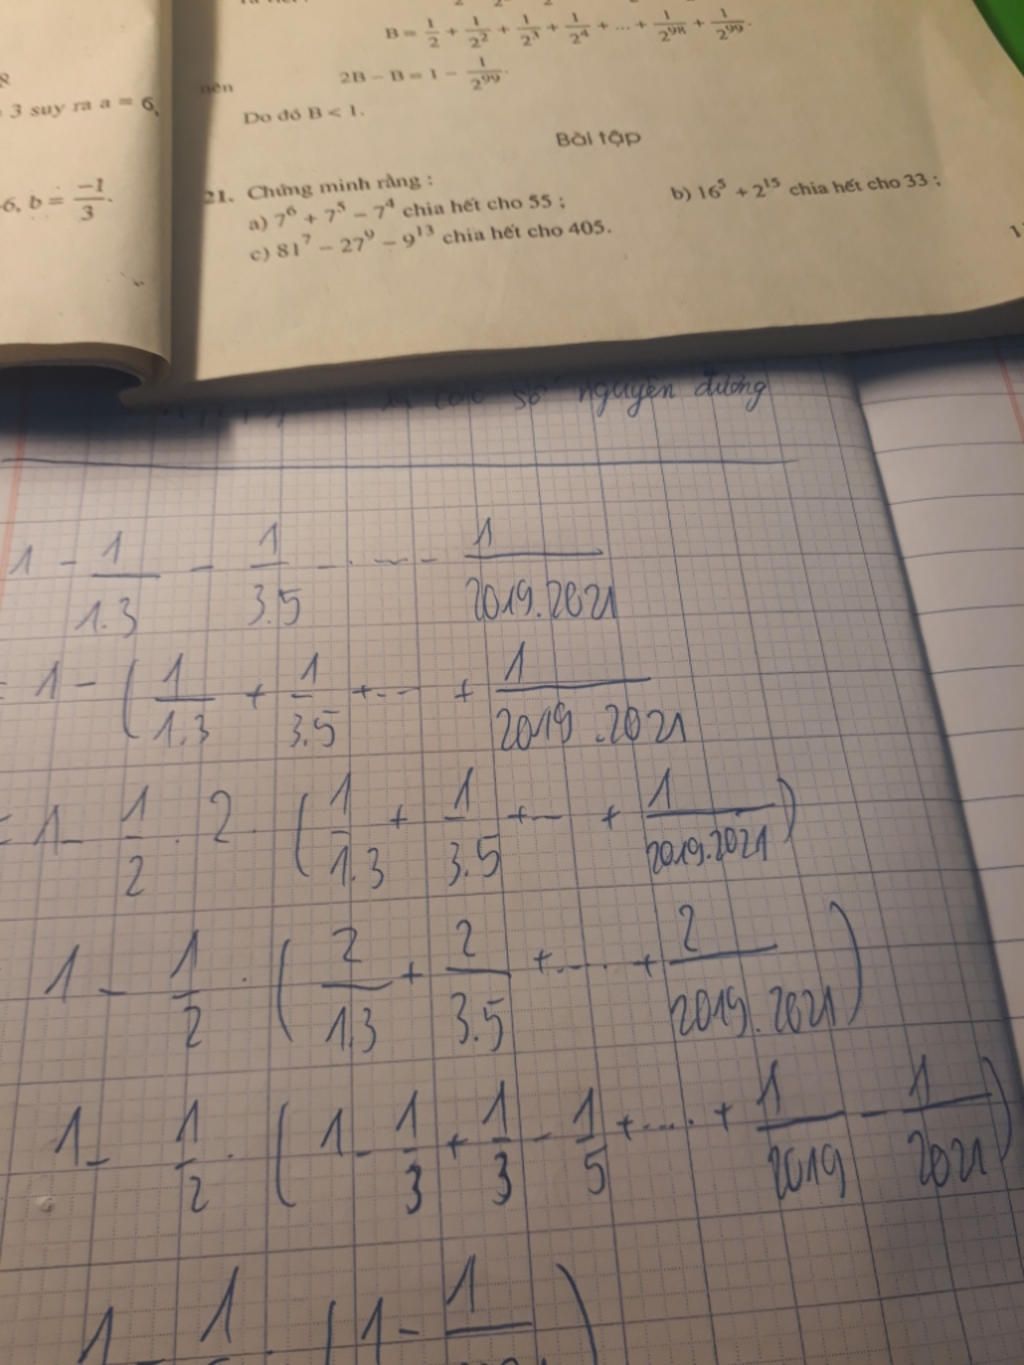 B = 1/2 + 1/2² + 1/2³ + 1/2⁴ + ... + 1/2⁹⁸ + 1/2⁹⁹.
nên 2B − B = 1 − 1/2⁹⁹.
Do đó B < 1.
Bài tập
3 suy ra a = 6,
6, b = −1/3.
21. Chứng minh rằng :
a) 7⁶ + 7⁵ − 7⁴ chia hết cho 55 ; b) 16⁵ + 2¹⁵ chia hết cho 33 ;
c) 81⁷ − 27⁹ − 9¹³ chia hết cho 405.
số nguyên dương
1 − 1/1.3 − 1/3.5 − ... − 1/2019.2021
= 1 − ( 1/1.3 + 1/3.5 + ... + 1/2019.2021
= 1 − 1/2 . 2 . ( 1/1.3 + 1/3.5 + ... + 1/2019.2021 )
1 − 1/2 . ( 2/1.3 + 2/3.5 + .... + 2/2019.2021 )
1 − 1/2 . ( 1 − 1/3 + 1/3 − 1/5 + .... + 1/2019 − 1/2021 )